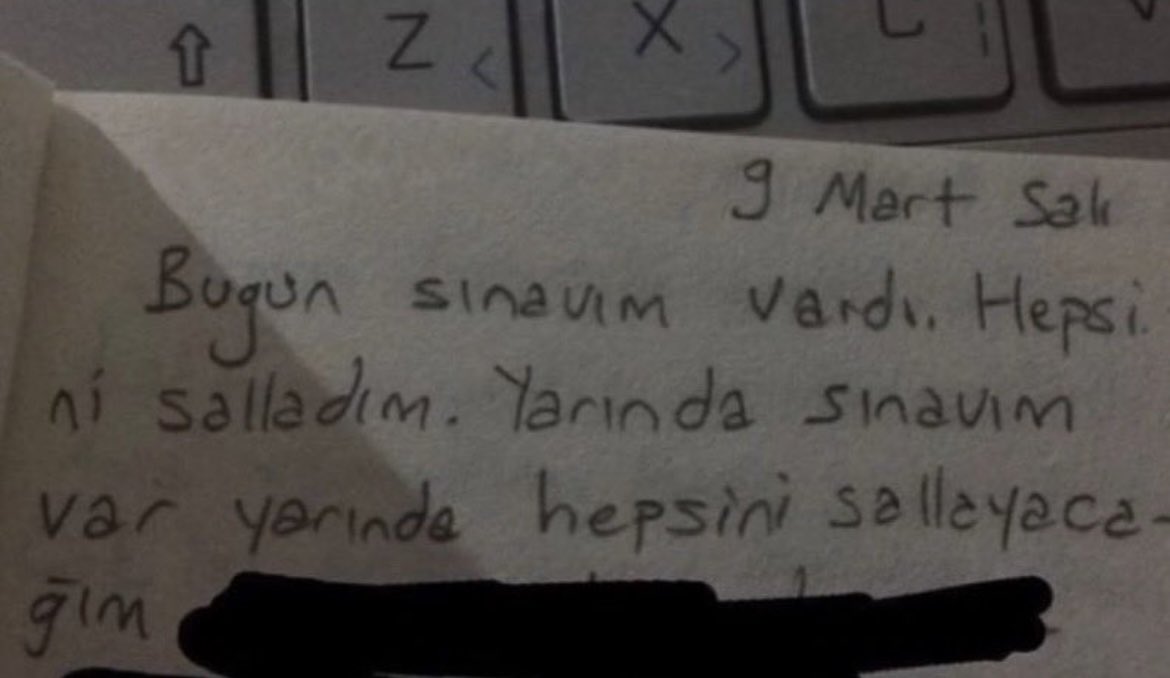 Z < X > C
9 Mart Salı
Bugün sınavım vardı. Hepsi.
ni salladım. Yarında sınavım
var yarında hepsini sallayaca-
ğım